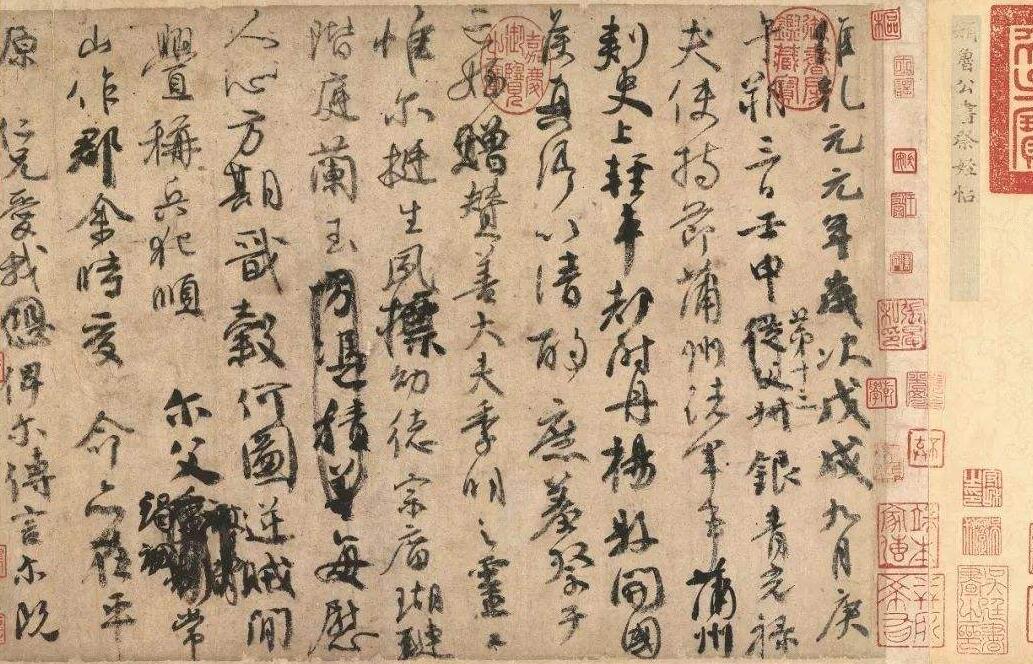 顏魯公書祭姪帖
維乾元元年歲次戊戌九月庚
午朔三日壬申第十三從父叔銀青光祿
夫使持節蒲州諸軍事蒲州
刺史上輕車都尉丹楊縣開國
侯真卿以清酌庶羞祭于
亡姪贈贊善大夫季明之靈曰
惟尔挺生夙標幼德宗廟瑚璉
階庭蘭玉方憑積善每慰
人心方期戩穀何圖逆賊閒
釁稱兵犯順尔父竭誠常
山作郡余時受命亦在平
原仁兄愛我俾尔傳言尔既
御書房鑑藏寶
嘉慶御覽之寶